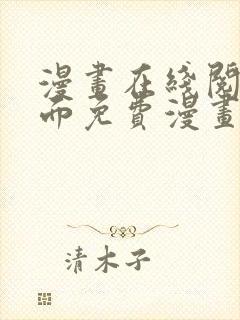 漫畫在綫閱
而免費漫畫
清木子